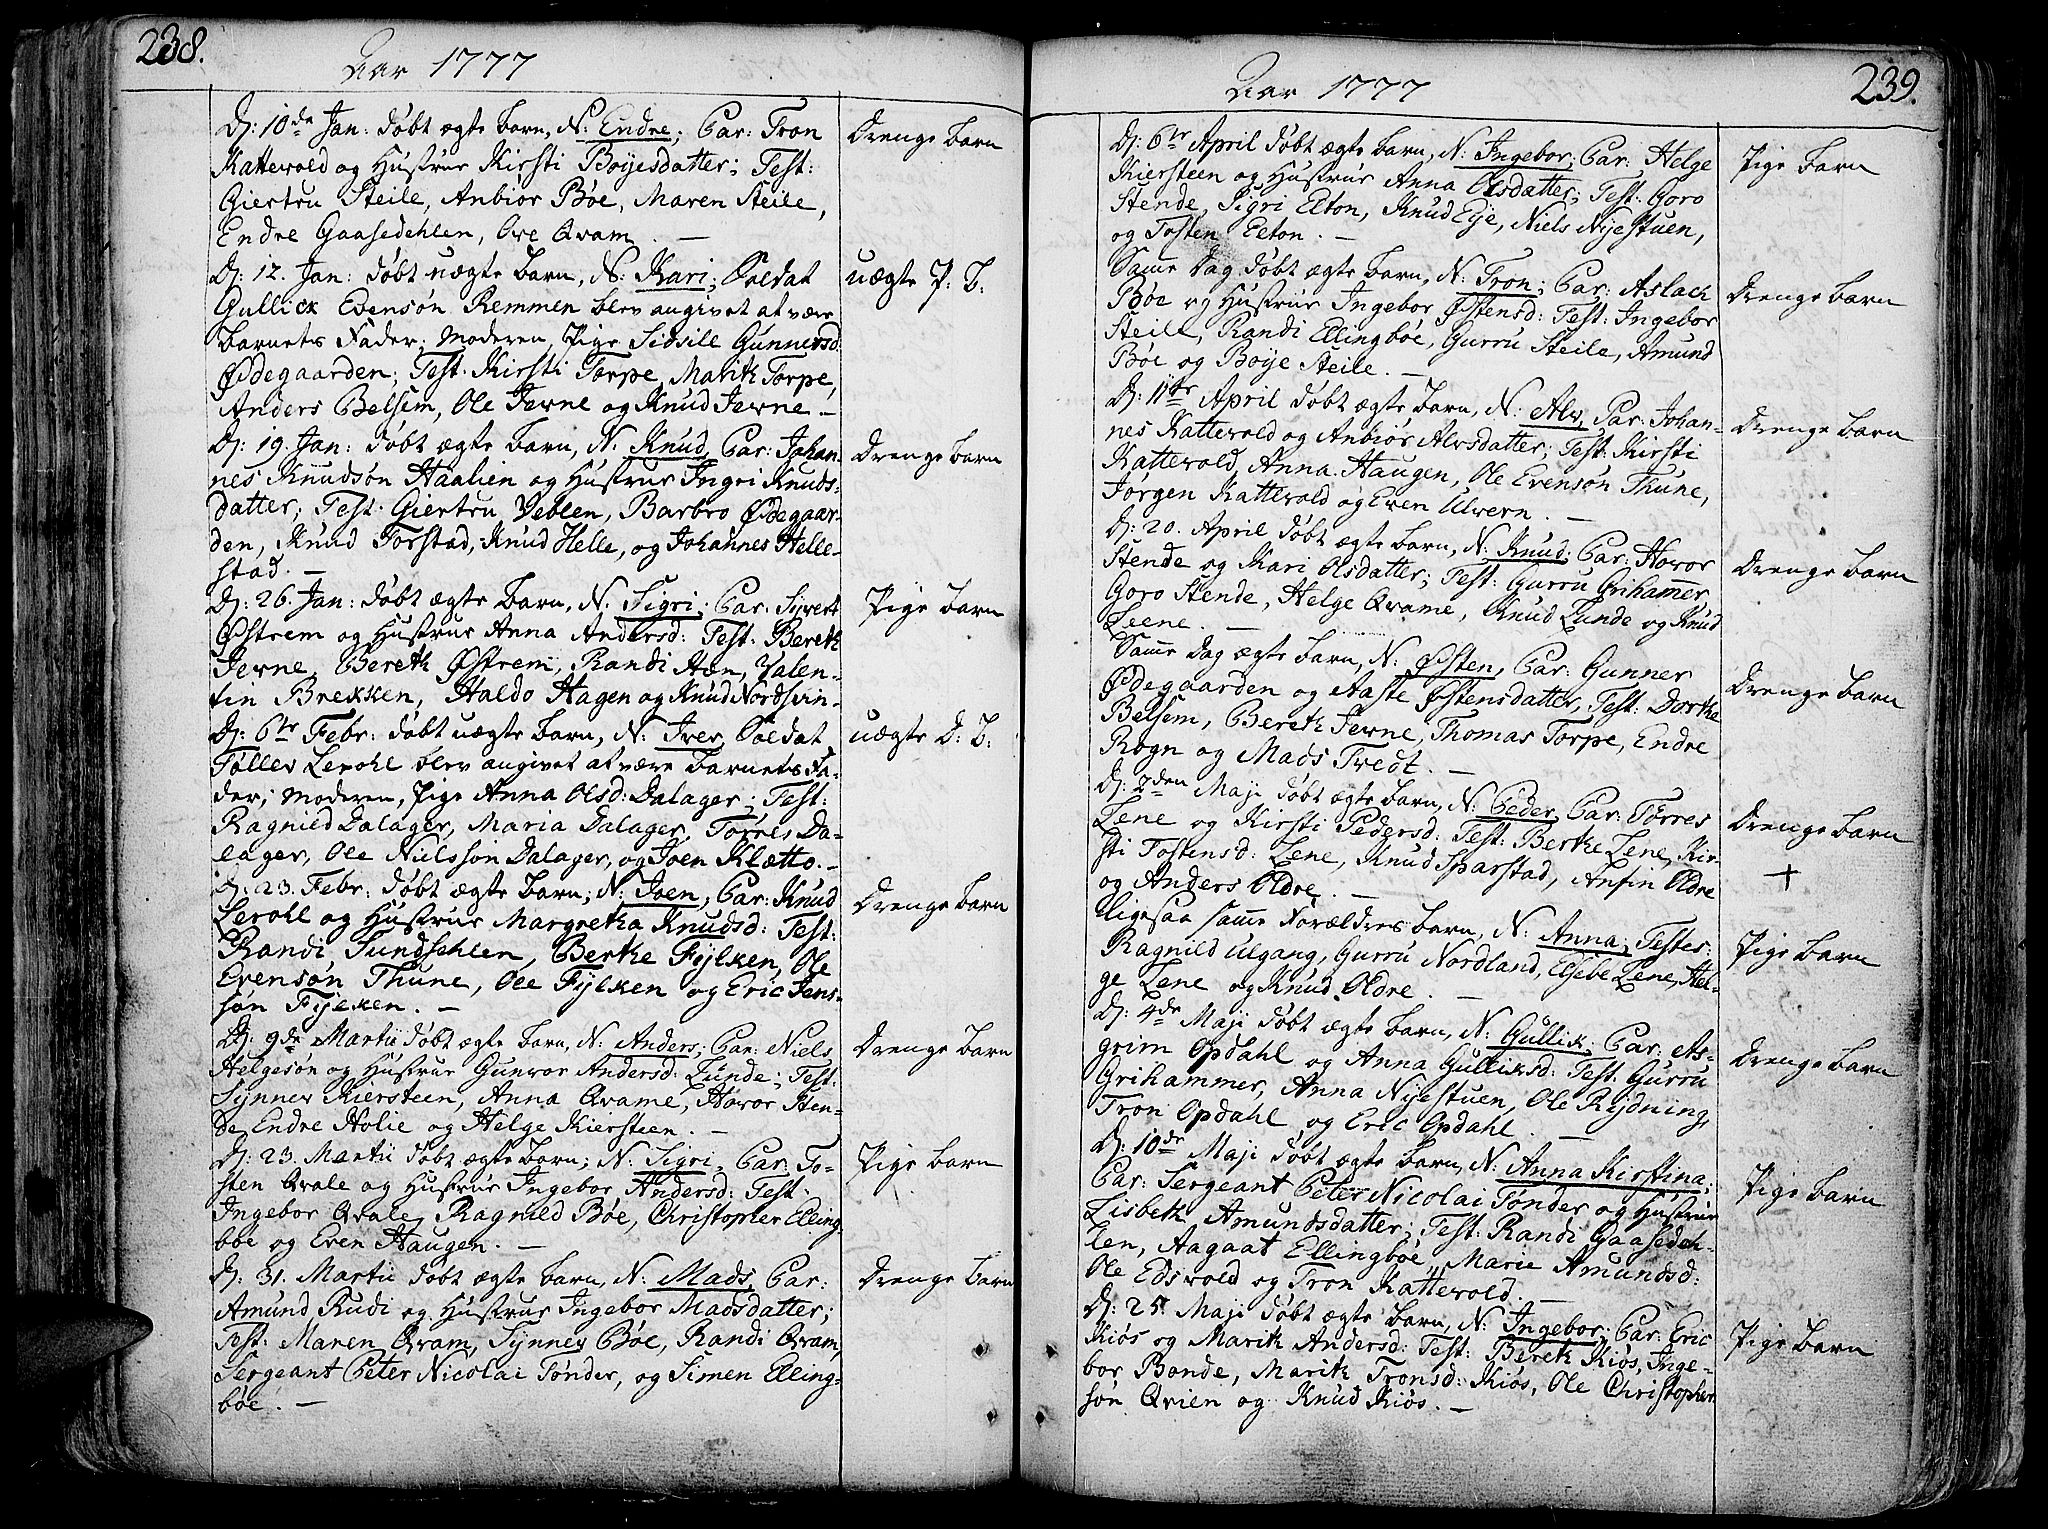 238.
Aar 1777
D: 10de Jan: døbt ægte barn, N: Endre; Par: Tron
Kattevold og Hustrue Kirsti Boyesdatter; Test:
Giertru Steile, Anbiør Bøe, Maren Steile,
Endre Gaasedehlen, Ove Qvam. —
Drenge barn
D: 12. Jan: døbt uægte barn, N: Kari; Soldat
Gullick Evensøn Remmen blev angivet at være
barnets Fader; Moderen, Pige Sidsile Gunnersd:
Ødegaarden; Test: Kirsti Torpe, Marith Torpe,
Anders Belsem, Ole Jerne og Knud Jerne —
uægte P: B:
D: 19. Jan: døbt ægte barn, N: Knud, Par: Johan-
nes Knudsøn Haalien og Hustrue Ingri Knuds-
datter; Test: Giertru Veblen, Barbro Ødegaar-
den, Knud Torstad, Knud Helle, og Johannes Helle-
stad. —
Drenge barn
D: 26. Jan: døbt ægte barn, N: Sigri; Par: Syvert
Østrem og Hustrue Anna Andersd: Test: Bereth
Jerne, Bereth Østrem, Randi Høn, Valen-
tin Brekken, Haldo Hagen og Knud Nordsvin-
Pige barn
D: 6te Febr: døbt uægte barn, N: Iver, Soldat
Tøllev Lerohl blev angivet at være barnets Fa-
der; Moderen, Pige Anna Olsd: Dalager; Test:
Ragnild Dalager, Maria Dalager, Tørres Da-
lager, Ole Nielssøn Dalager, og Joen Klætto. —
uægte D: B:
D: 23. Febr: døbt ægte barn; N: Joen; Par: Knud
Lerohl og Hustrue Margretha Knudsd: Test:
Randi Sundsehlen, Berthe Fylken, Ole
Evensøn Thune, Ole Fylken og Eric Jens-
søn Fylken. —
Drenge barn
D: 9de Martii døbt ægte barn, N: Anders; Par: Niels
Helgesøn og Hustrue Gunvor Andersd: Lunde; Test:
Synnev Kiersteen, Anna Qvame, Hovor Sten-
de, Endre Holie og Helge Kiersteen. —
Drenge barn
D: 23. Martii døbt ægte barn; N: Sigri, Par: To-
sten Qvale og Hustrue Ingebor Andersd: Test:
Ingebor Qvale, Ragnild Bøe, Christopher Elling-
bøe og Even Haugen. —
Pige barn
D: 31. Martii døbt ægte barn, N: Mads, Par:
Amund Rudi og Hustrue Ingebor Madsdatter;
Test: Maren Qvam, Synnev Bøe, Randi Qvam,
Sergeant Peter Nicolai Tønder, og Simen Elling-
bøe. —
Drenge barn
239.
Aar 1777
D: 6te April døbt ægte barn, N: Ingebor; Par: Helge
Kiersteen og Hustrue Anna Olsdatter; Test: Goro
Stende, Sigri Elton, Knud Eye, Niels Nyestuen,
og Tosten Elton. —
Pige barn
Samme Dag døbt ægte barn, N: Tron; Par: Aslach
Bøe og Hustrue Ingebor Østensd: Test: Ingebor
Steile, Randi Ellingbøe, Gurru Steile, Amund
Bøe og Boye Steile. —
Drenge barn
D: 11te April døbt ægte barn, N: Alv, Par: Johan-
nes Kattevold og Anbiør Alvsdatter; Test: Kirsti
Kattevold, Anna Haugen, Ole Evensøn Thune,
Jørgen Kattevold og Even Ulvern. —
Drenge barn
D: 20. April døbt ægte barn, N: Knud; Par: Hovor
Stende og Kari Olsdatter; Test: Gurru Grihammer
Goro Stende, Helge Qvame, Knud Lunde og Knud
Leene. —
Drenge barn
Samme Dag ægte barn, N: Østen, Par: Gunner
Ødegaarden og Aaste Østensdatter, Test: Dorthe
Belsem, Bereth Jerne, Thomas Torpe, Endre
Rogn og Mads Tredt. —
Drenge barn
D: 2den Maji døbt ægte barn, N: Peder, Par: Tørres
Lene og Kirsti Pedersd: Test: Berthe Lene, Kir-
sti Tostensd: Lene, Knud Sparstad, Anfin Oldre
og Anders Oldre. —
Drenge barn
+
ligesaa samme Forældres barn, N: Anna; Testes:
Ragnild Ulgang, Gurru Nordland, Elsebe Lene, Hel-
ge Lene og Knud Oldre. —
Pige barn
D: 4de Maji døbt ægte barn, N: Gullik; Par: As-
grim Opdahl og Anna Gulliksd: Test: Gurru
Grihammer, Anna Nyestuen, Ole Rydning,
Tron Opdahl og Eric Opdahl. —
Drenge barn
D: 10de Maji døbt ægte barn, N: Anna Kirstina;
Par: Sergeant Peter Nicolai Tønder og Hustrue
Lisbeth Amundsdatter; Test: Randi Gaasedeh-
len, Aagaat Ellingbøe, Marie Amundsd:
Ole Edsvold og Tron Kattevold. —
Pige barn
D: 25. Maji døbt ægte barn, N: Ingebor; Par: Eric
Kiøs og Marith Andersd: Test: Bereth Kiøs, Inge-
bor Bonde, Marith Tronsd: Kiøs, Ole Christopher-
søn Qvien og Knud Kiøs. —
Pige barn